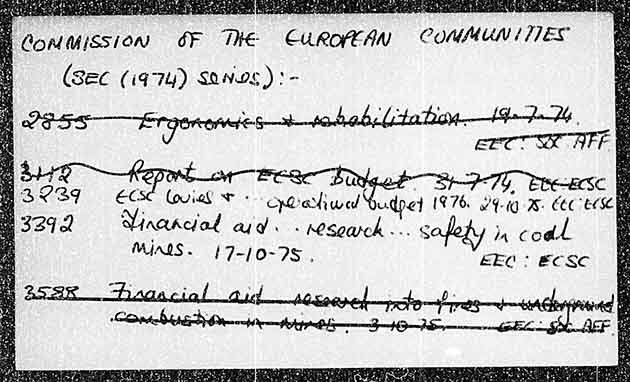 COMMISSION OF THE EUROPEAN COMMUNITIES
(SEC (1974) series):-
2855 Ergonomics + rehabilitation. 19-7-74.
EEC: SOC AFF.
3112 Report on ECSC Budget. 31-7-74. EEC:ECSC
3239 ECSC levies + ... operational budget 1976. 29-10-75. EEC:ECSC
3392 Financial aid... research... safety in coal
mines. 17-10-75. EEC: ECSC
3588 Financial aid research into fires + underground
combustion in mines. 3-10-75. EEC: SOC AFF.